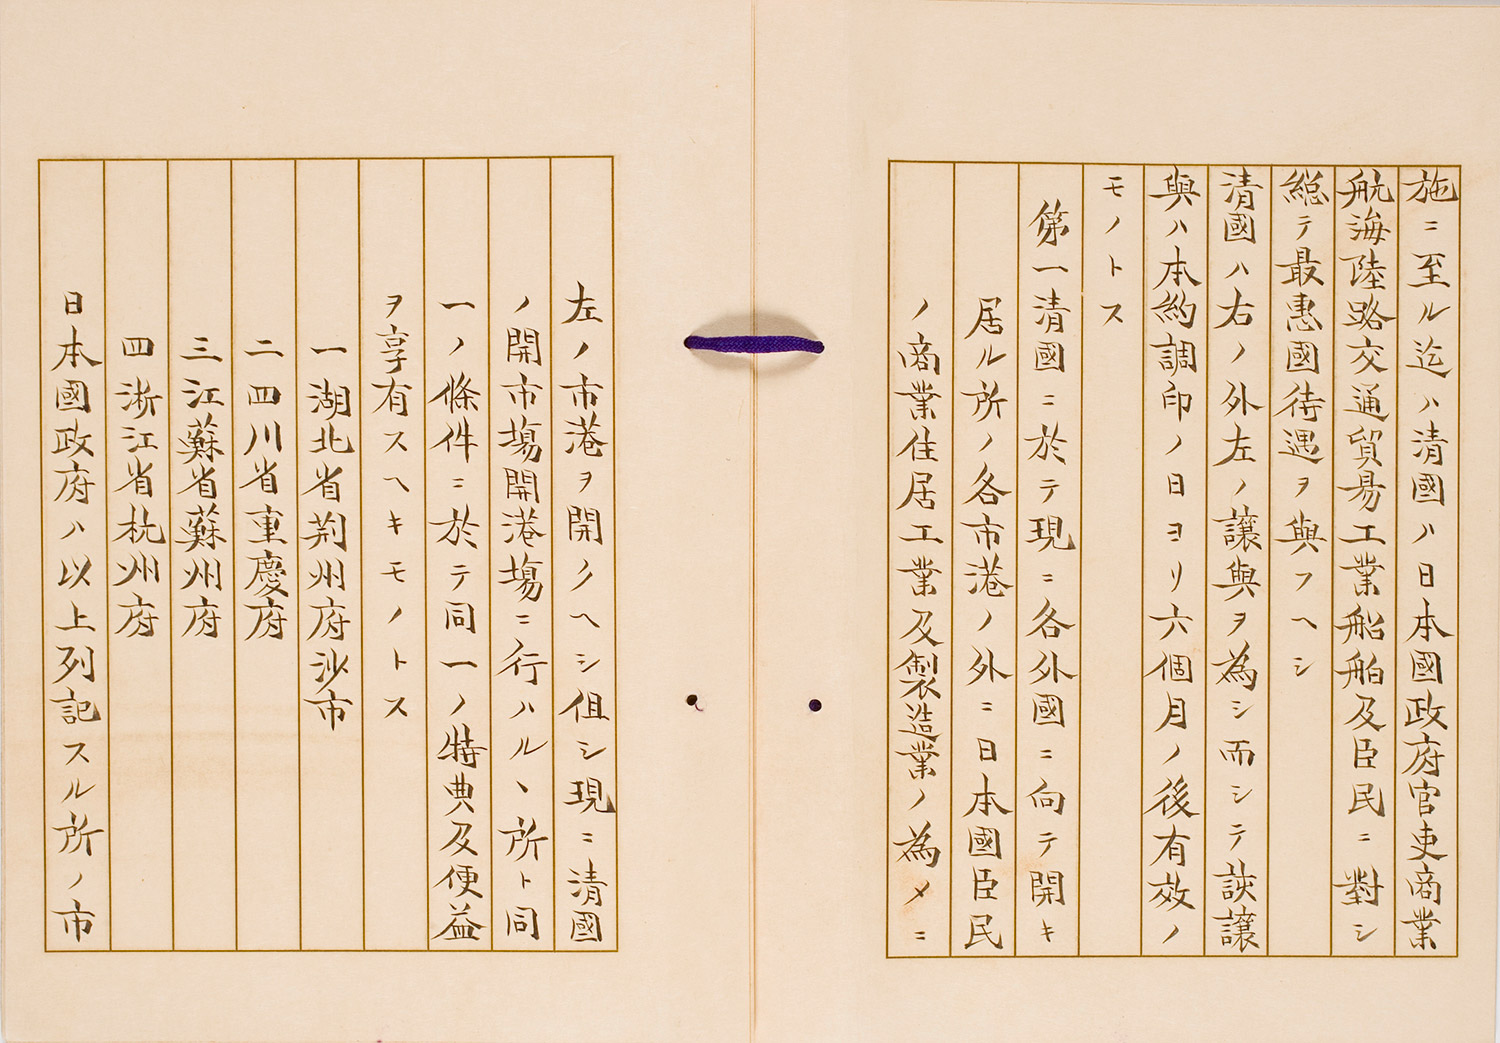 施ニ至ル迄ハ清國ハ日本國政府官吏商業
航海陸路交通貿易工業船舶及臣民ニ對シ
総テ最惠國待遇ヲ與フヘシ
清國ハ右ノ外左ノ讓與ヲ為シ而シテ該讓
與ハ本約調印ノ日ヨリ六個月ノ後有效ノ
モノトス
第一清國ニ於テ現ニ各外國ニ向テ開キ
居ル所ノ各市港ノ外ニ日本國臣民
ノ商業住居工業及製造業ノ為メニ
左ノ市港ヲ開クヘシ但シ現ニ清國
ノ開市場開港場ニ行ハルヽ所ト同
一ノ條件ニ於テ同一ノ特典及便益
ヲ享有スヘキモノトス
一湖北省荆州府沙市
二四川省重慶府
三江蘇省蘇州府
四浙江省杭州府
日本國政府ハ以上列記スル所ノ市